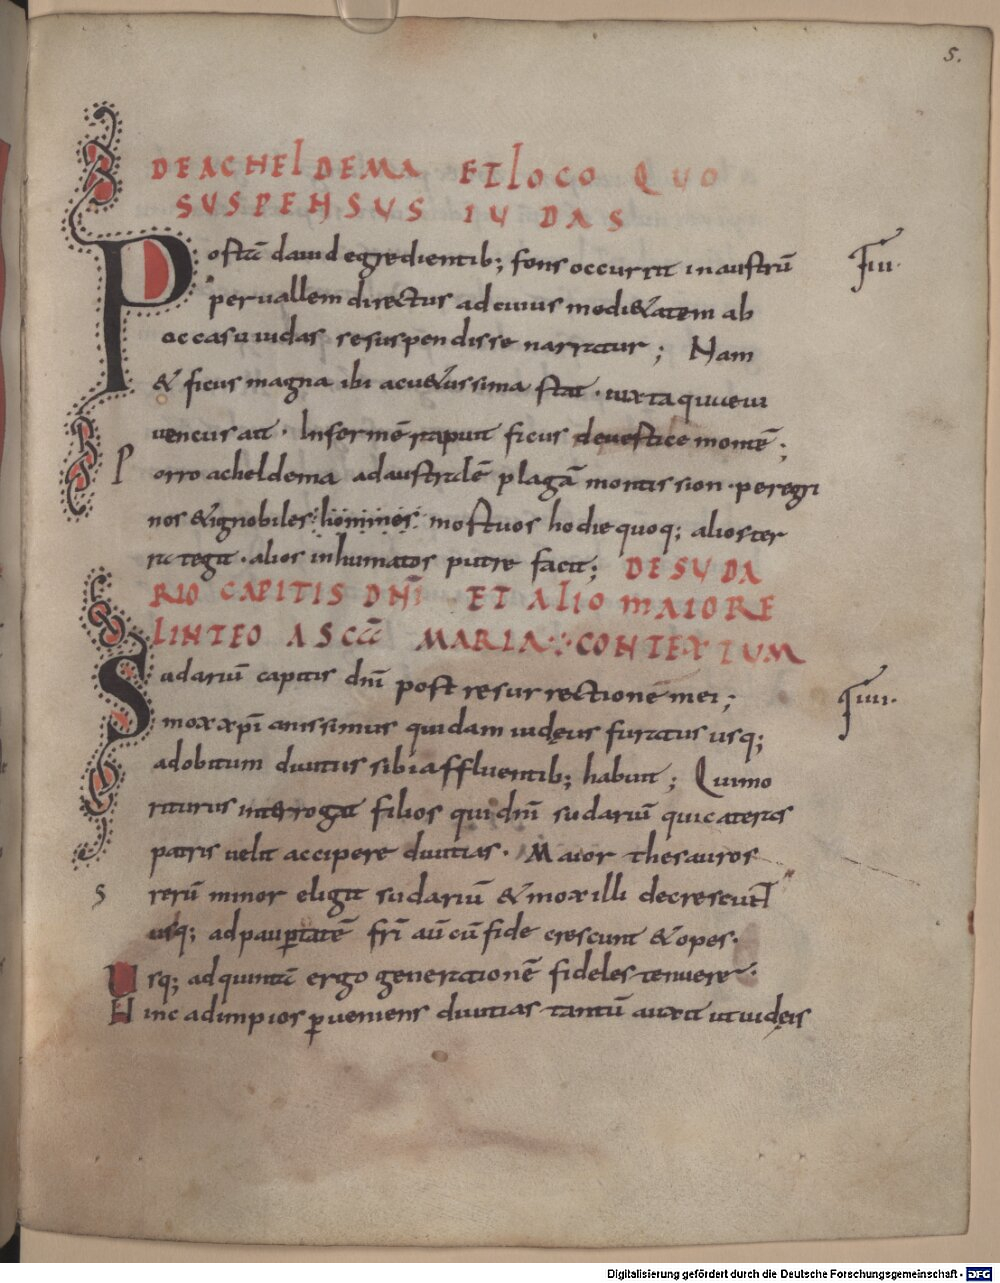 5.
DE ACHELDEMA ET LOCO QUO
SUSPENSUS IUDAS
Portā dauid egredientib; fons occurrit in austrū
per uallem directus ad cuius medi&atem ab
occasu iudas se suspendisse narratur; Nam
& ficus magna ibi ac u&ustissima stat · iuxta qui ueiu
uencus ait · Informē rapuit ficus de uestice montē;
Porro acheldema ad australē plagā montis sion · peregri
nos & ignobiles homines mortuos hodie quoq; alios ter
ra tegit · alios inhumatos putre facit; DE SUDA
RIO CAPITIS DNI ET ALIO MAIORE
LINTEO A SCA MARIA CONTEXTUM
Sudariū capitis dnī post resurrectionē mei;
mox xpīanissimus quidam iudęus furatus usq;
ad obitum diuitiis sibi affluentib; habuit; Qui mo
riturus interrogat filios qui dnī sudariū qui cateras
patris uelit accipere diuitias · Maior thesauros
rerū minor eligit sudariū & mox illi decrescunt
usq; ad paupertatē frī aū cū fide crescunt & opes ·
Usq; ad quintā ergo generationē fideles tenuere ·
Hinc ad impios ꝑueniens diuitias tantū auxit ut iudęis
IIII·
Digitalisierung gefördert durch die Deutsche Forschungsgemeinschaft - DFG